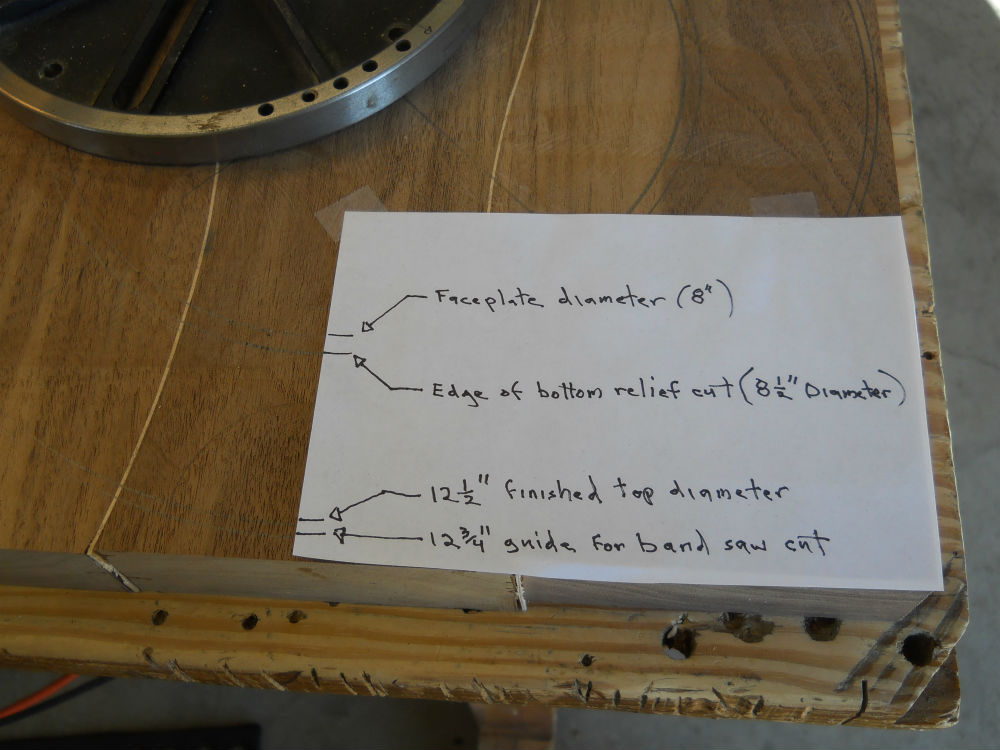 Faceplate diameter (8")
Edge of bottom relief cut (8 1/2" Diameter)
12 1/2" finished top diameter
12 3/4" guide for band saw cut